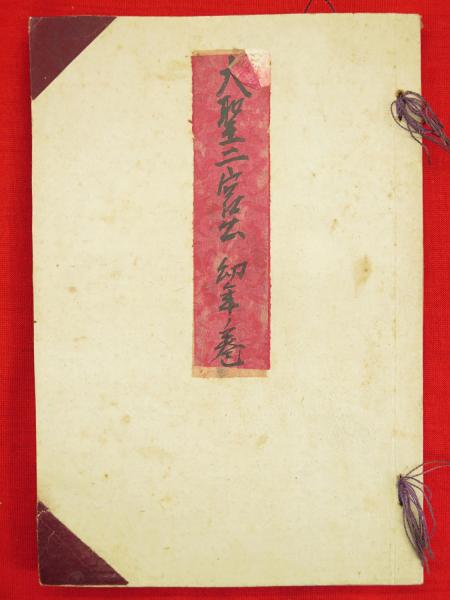 大聖二宮公 幼年ノ巻